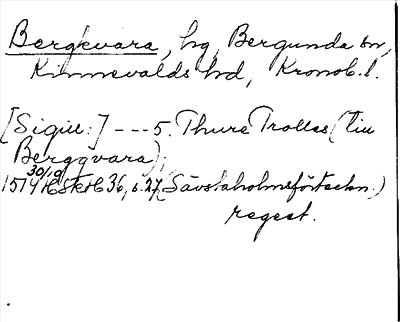 Bergkvara, hg, Bergunda sn,
Kinnevalds hd, Kronob. l.
[Sigill:] --- 5. Thure Trolles (till
Bergqvara);
30/10
1574 HSH 36, s. 27 (Sävstaholmsförteckn.)
regest.